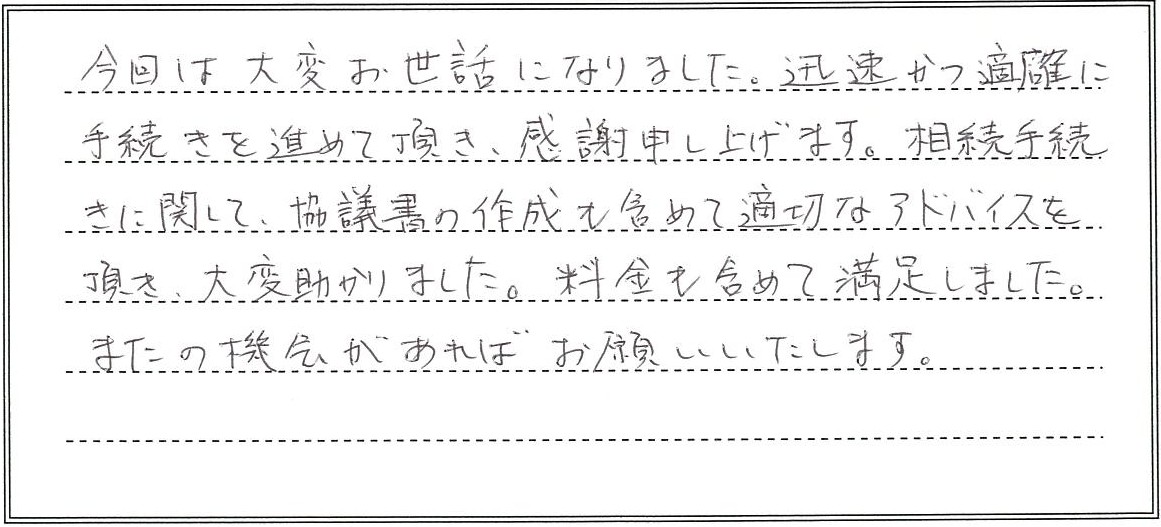 今回は大変お世話になりました。迅速かつ適確に
手続きを進めて頂き、感謝申し上げます。相続手続
きに関して、協議書の作成も含めて適切なアドバイスを
頂き、大変助かりました。料金も含めて満足しました。
またの機会があればお願いいたします。